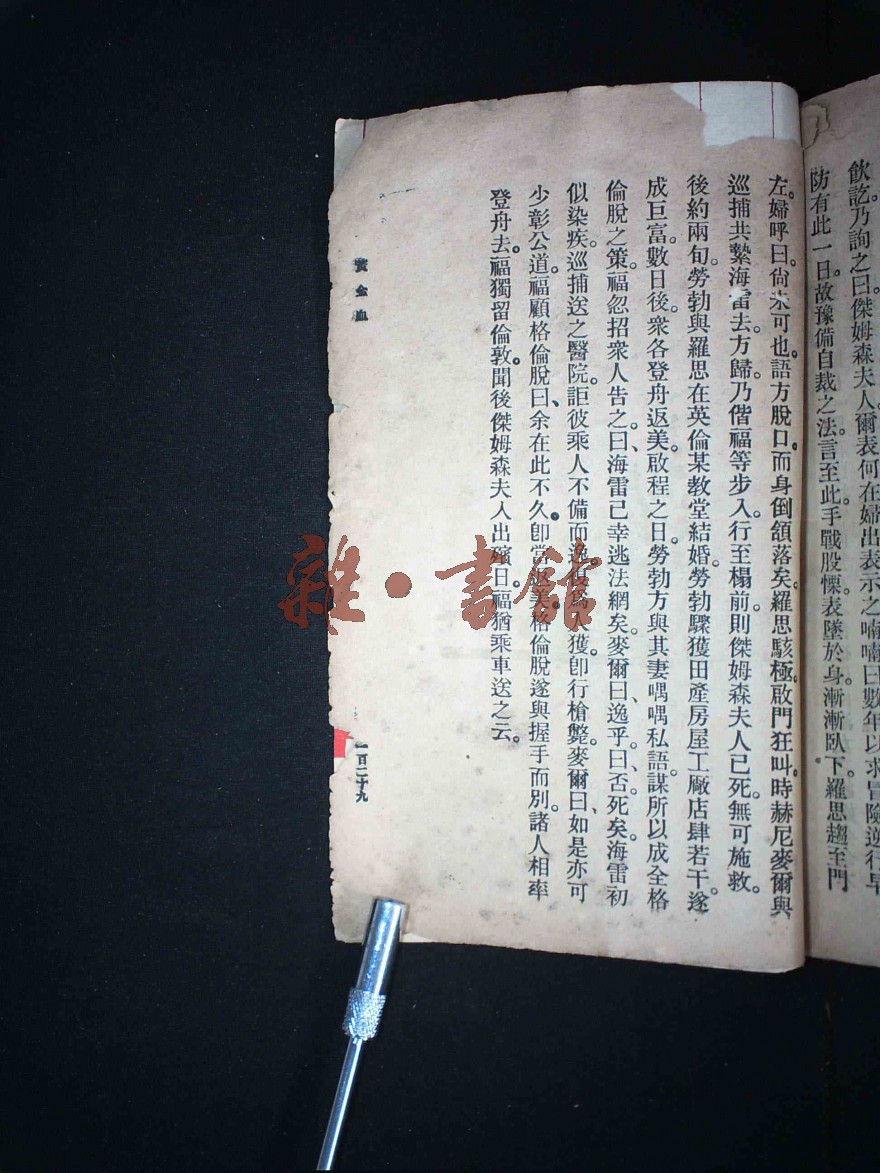 飲訖乃詢之曰傑姆森夫人爾表何在婦出表示之喃喃曰數年以來冒險逆行早
防有此一日。故豫備自裁之法。言至此。手戰股慄。表墜於身。漸漸臥下。羅思趨至門
左。婦呼曰。尙未可也。語方脫口。而身倒頷落矣。羅思駭極。啟門狂叫。時赫尼麥爾與
巡捕共縶海雷去。方歸。乃偕福等步入。行至榻前。則傑姆森夫人已死。無可施救。
後約兩旬。勞勃與羅思在英倫某教堂結婚。勞勃驟獲田產房屋工廠店肆若干。遂
成巨富。數日後。衆各登舟返美。啟程之日。勞勃方與其妻喁喁私語。謀所以成全格
倫脫之策。福忽招衆人告之曰、海雷已幸逃法網矣。麥爾曰、逸乎。曰、否、死矣。海雷初
似染疾。巡捕送之醫院。詎彼乘人不備而逸。復爲人獲。卽行槍斃。麥爾曰、如是亦可
少彰公道。福顧格倫脫曰、余在此不久。卽當返美。格倫脫遂與握手而別。諸人相率
登舟去。福獨留倫敦。聞後傑姆森夫人出殯日。福猶乘車送之云。
黃金血
一百二十九
雜·書館